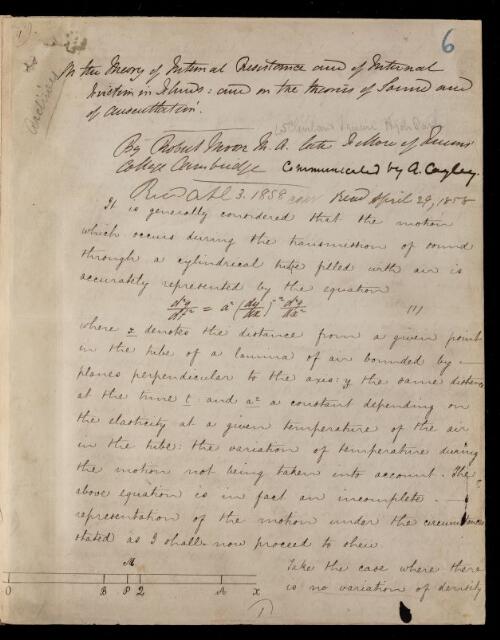 6
On the Theory of Internal Resistance and of Internal
Friction in Fluids: and on the theories of Sound and
of Auscultation.
By Robert Moon M. A. late Fellow of Queens'
College Cambridge Communicated by A. Cayley.
Recd 3. 1858 Read April 29, 1858
It is generally considered that the motion
which occurs during the transmission of sound
through a cylindrical tube filled with air is
accurately represented by the equation
d²y/dt² = a² (dy/dx)⁻² d²y/dx² (1)
where x denotes the distance from a given point
in the tube of a lamina of air bounded by
planes perpendicular to the axis: y the same distance
at the time t: and a² a constant depending on
the elasticity at a given temperature of the air
in the tube: the variation of temperature during
the motion not being taken into account. The
above equation is in fact an incomplete
representation of the motion under the circumstances
stated as I shall now proceed to shew.
Take the case where there
is no variation of density
M
O B P Q A x
1)